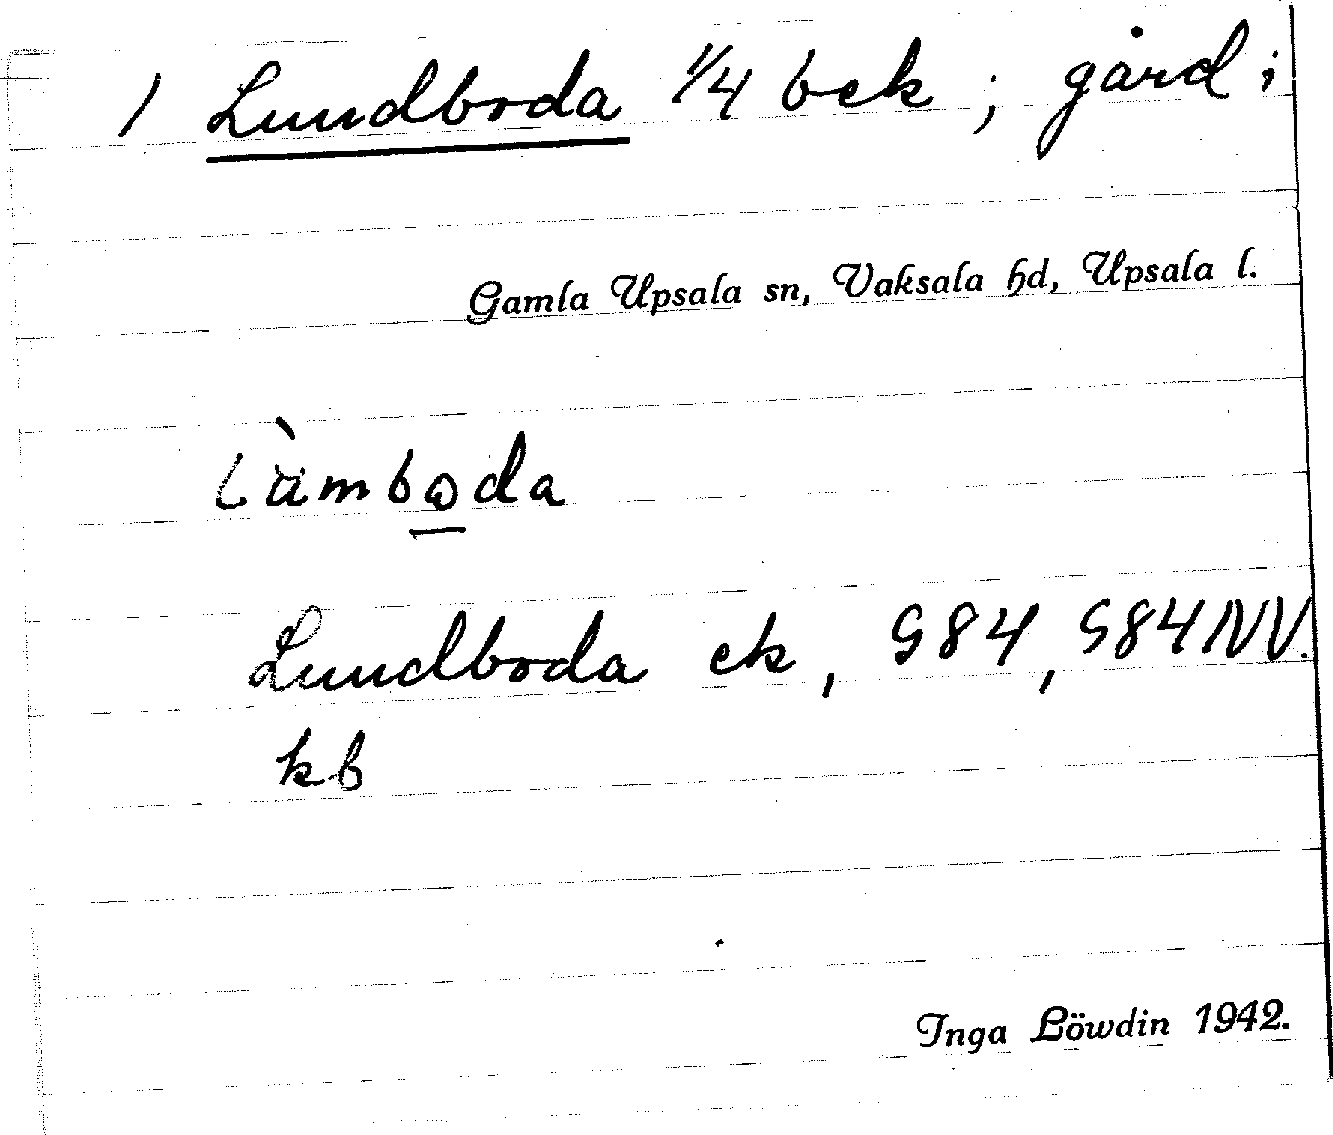 1 Lundboda 1/4 bek ; gård i
Gamla Upsala sn, Vaksala hd, Upsala l.
làmboda
Lundboda ek, G84, G84NV.
kb
Inga Löwdin 1942.